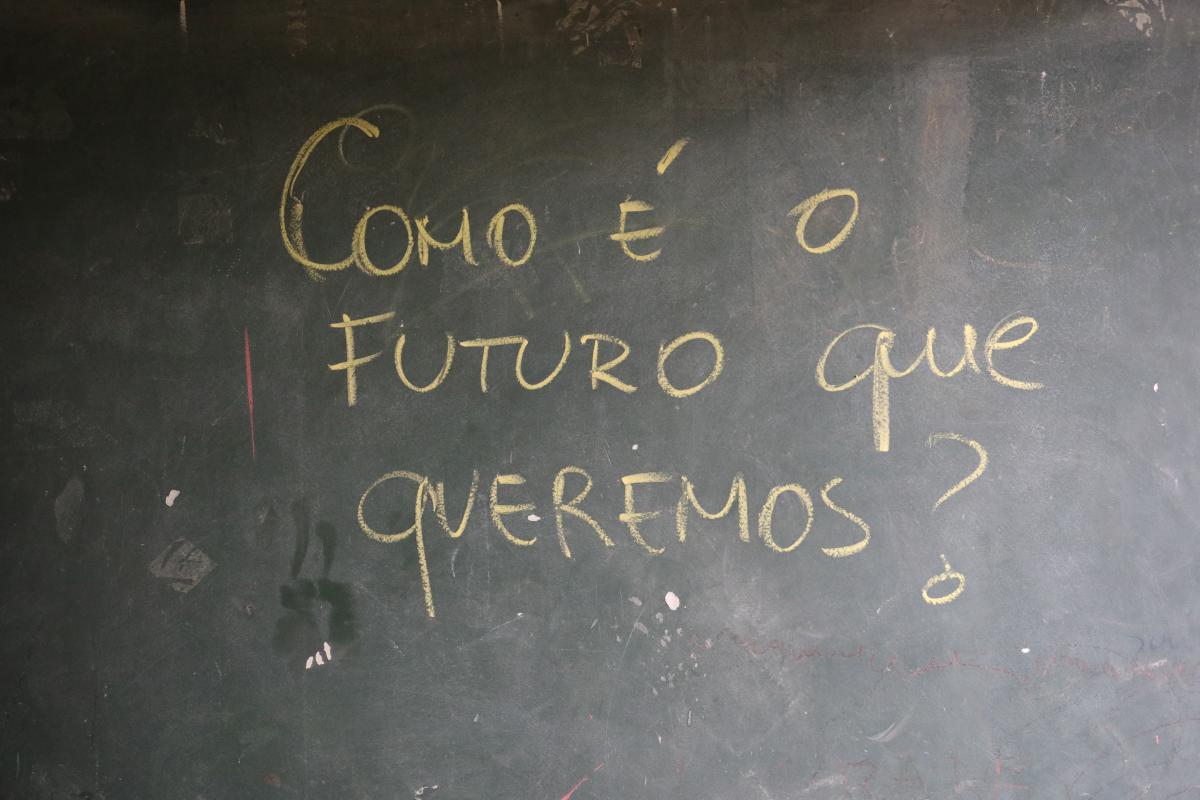 Como É o
FUTURO que
QUEREMOS?